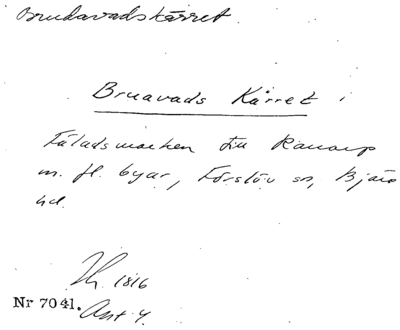 Brudavadskärret.
Bruavads Kärret i
Fäladsmarken till Ranarp
m. fl. byar, Förslöv sn, Bjäre
hd.
1816
Nr 7041. Akt 4.